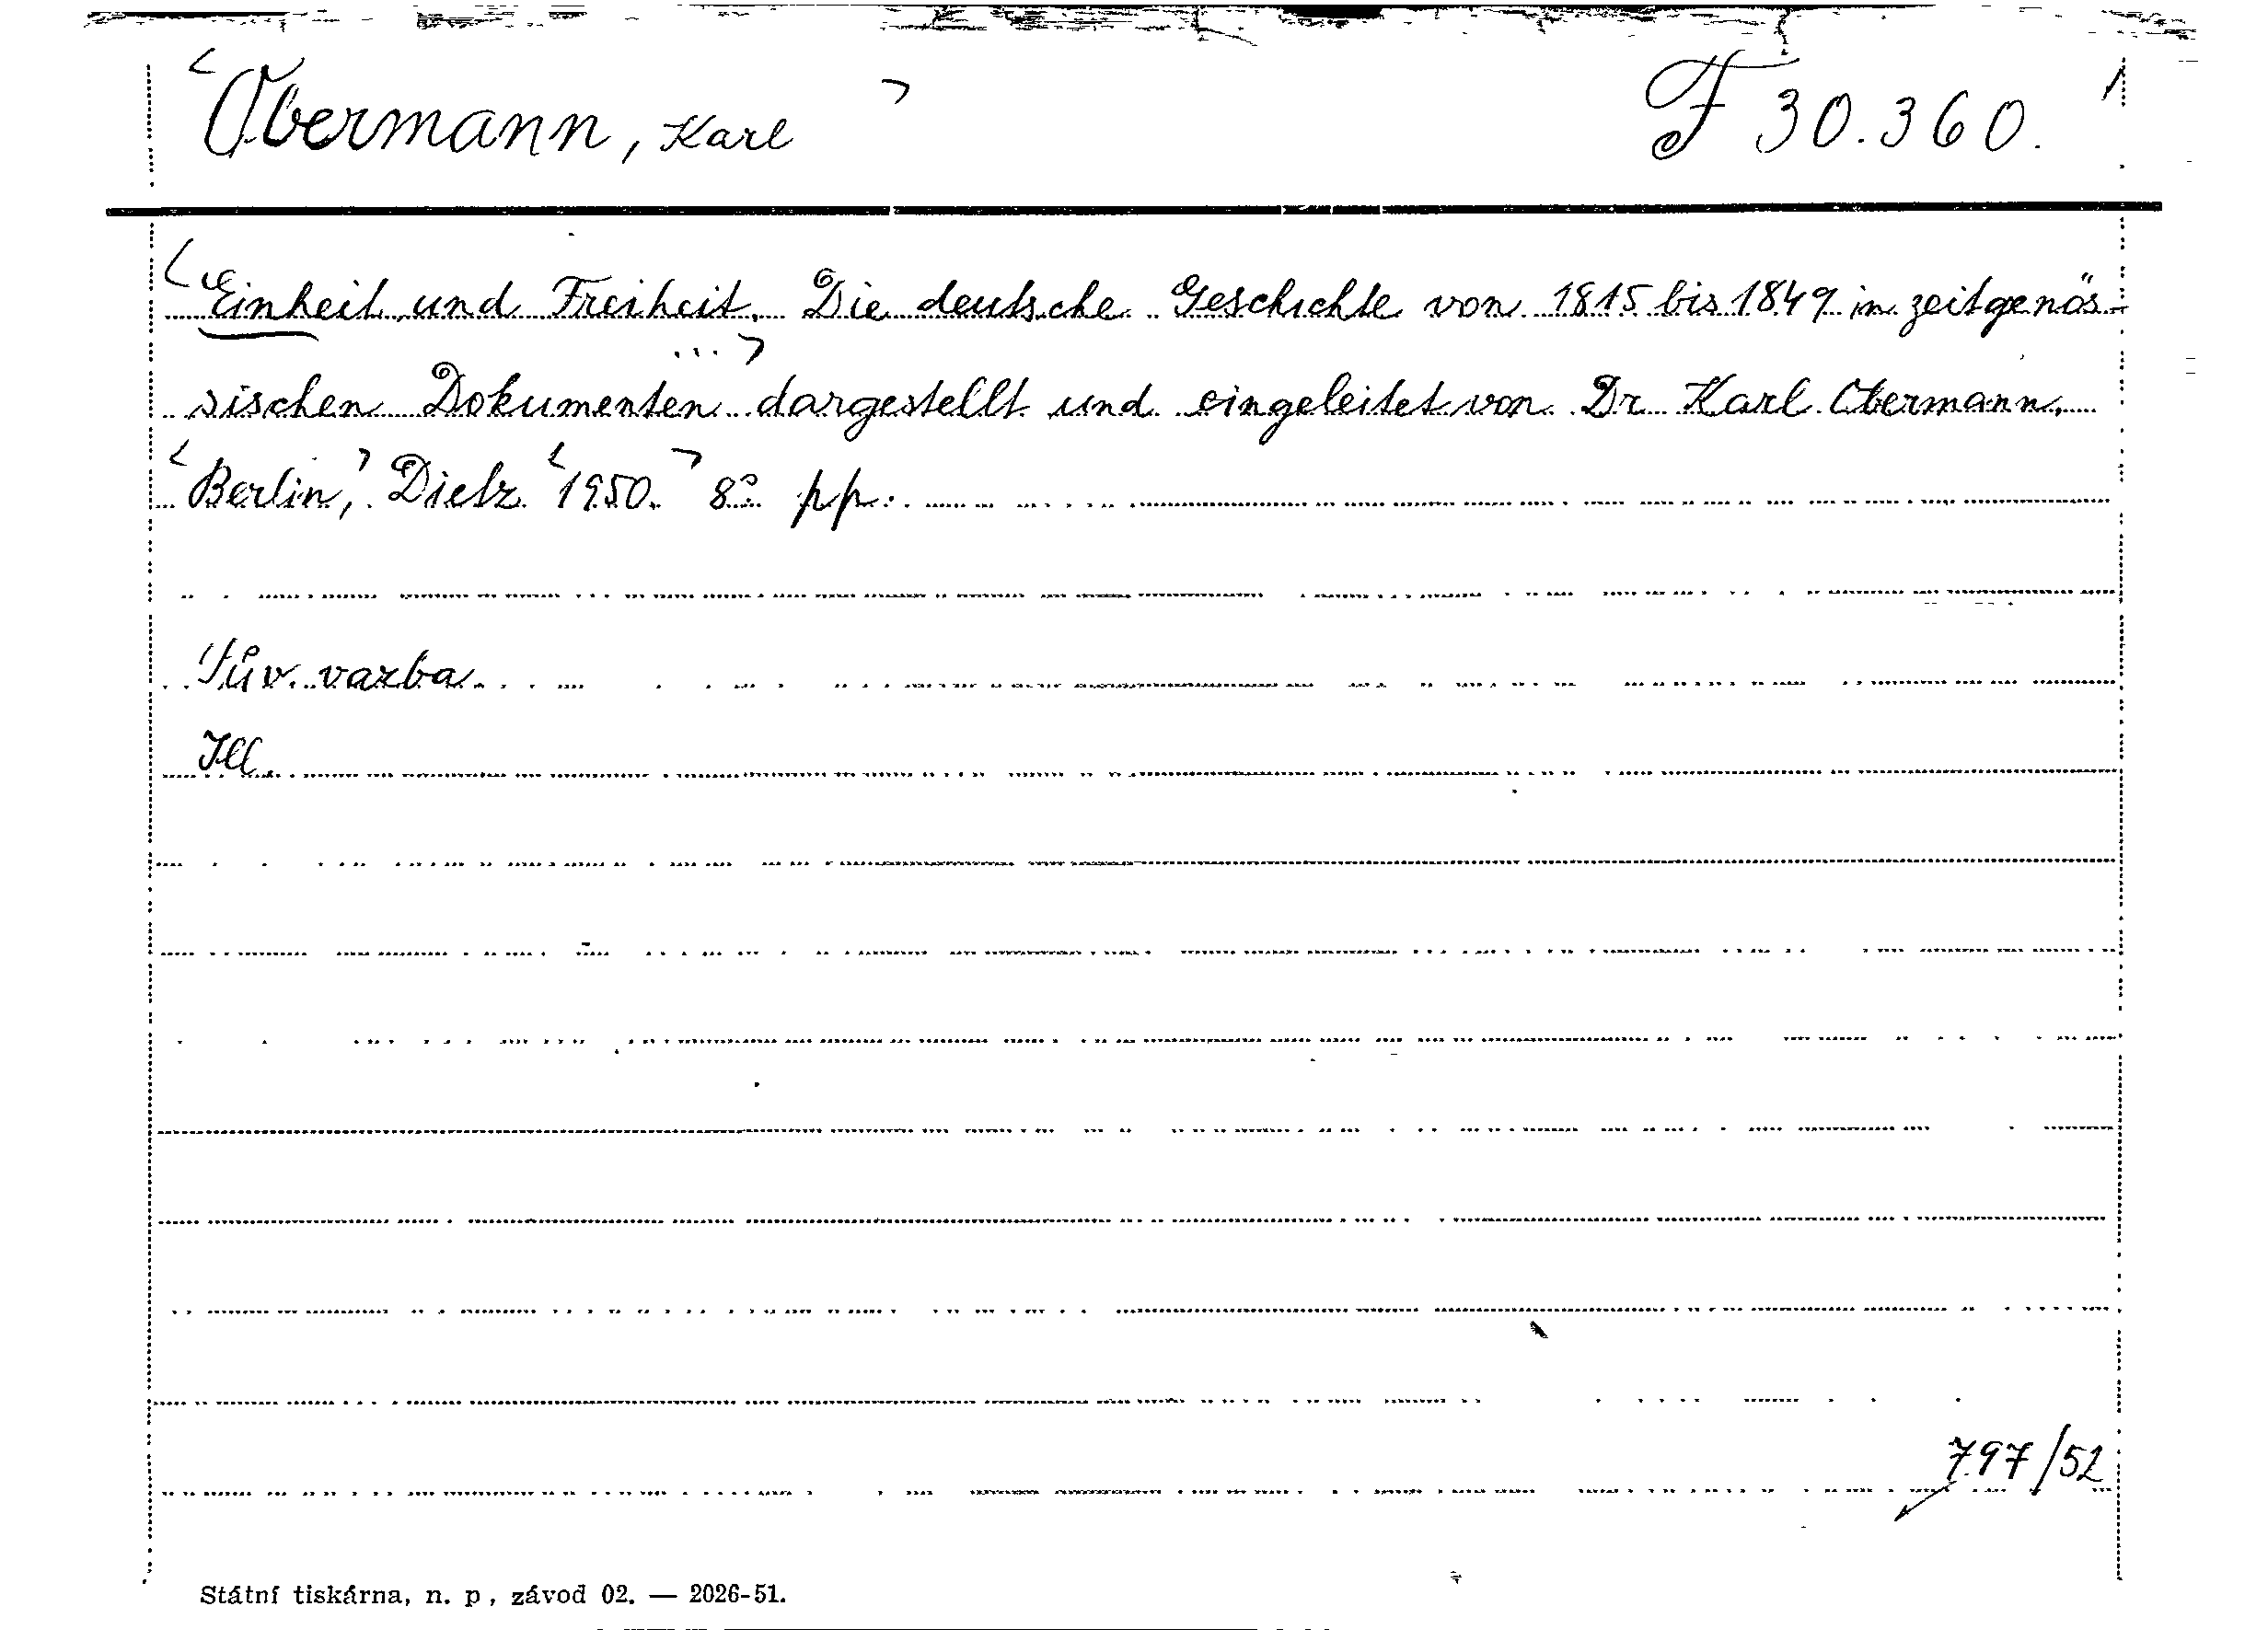 <Obermann, Karl> F 30.360.
<Einheit und Freiheit. Die deutsche Geschichte von 1815 bis 1849 in zeitgenös-
sischen Dokumenten ...> dargestellt und eingeleitet von Dr Karl Obermann.
<Berlin,> Dietz <1950.> 8° pp.
Pův. vazba.
Ill.
797/52
Státní tiskárna, n. p., závod 02. — 2026-51.